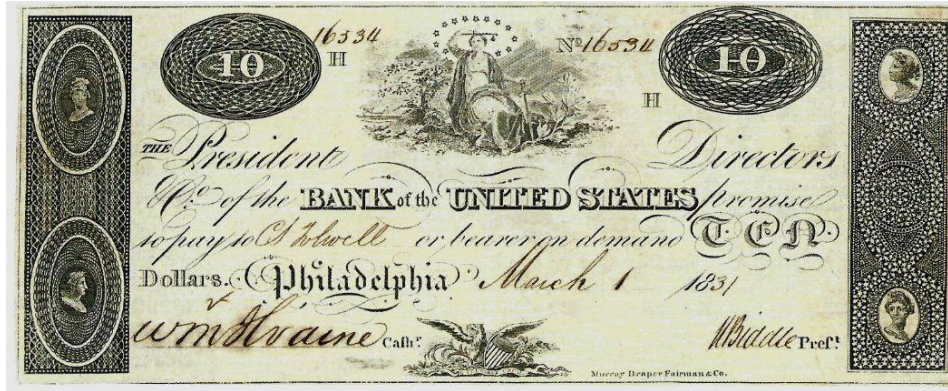 10 16534 Nº 16534 10
H
H
THE President Directors
& Cº. of the BANK of the UNITED STATES promise
to pay to or bearer on demand TEN
Dollars. Philadelphia March 1 1831
Cashr. N Biddle Prest.
Murray Draper Fairman & Co.